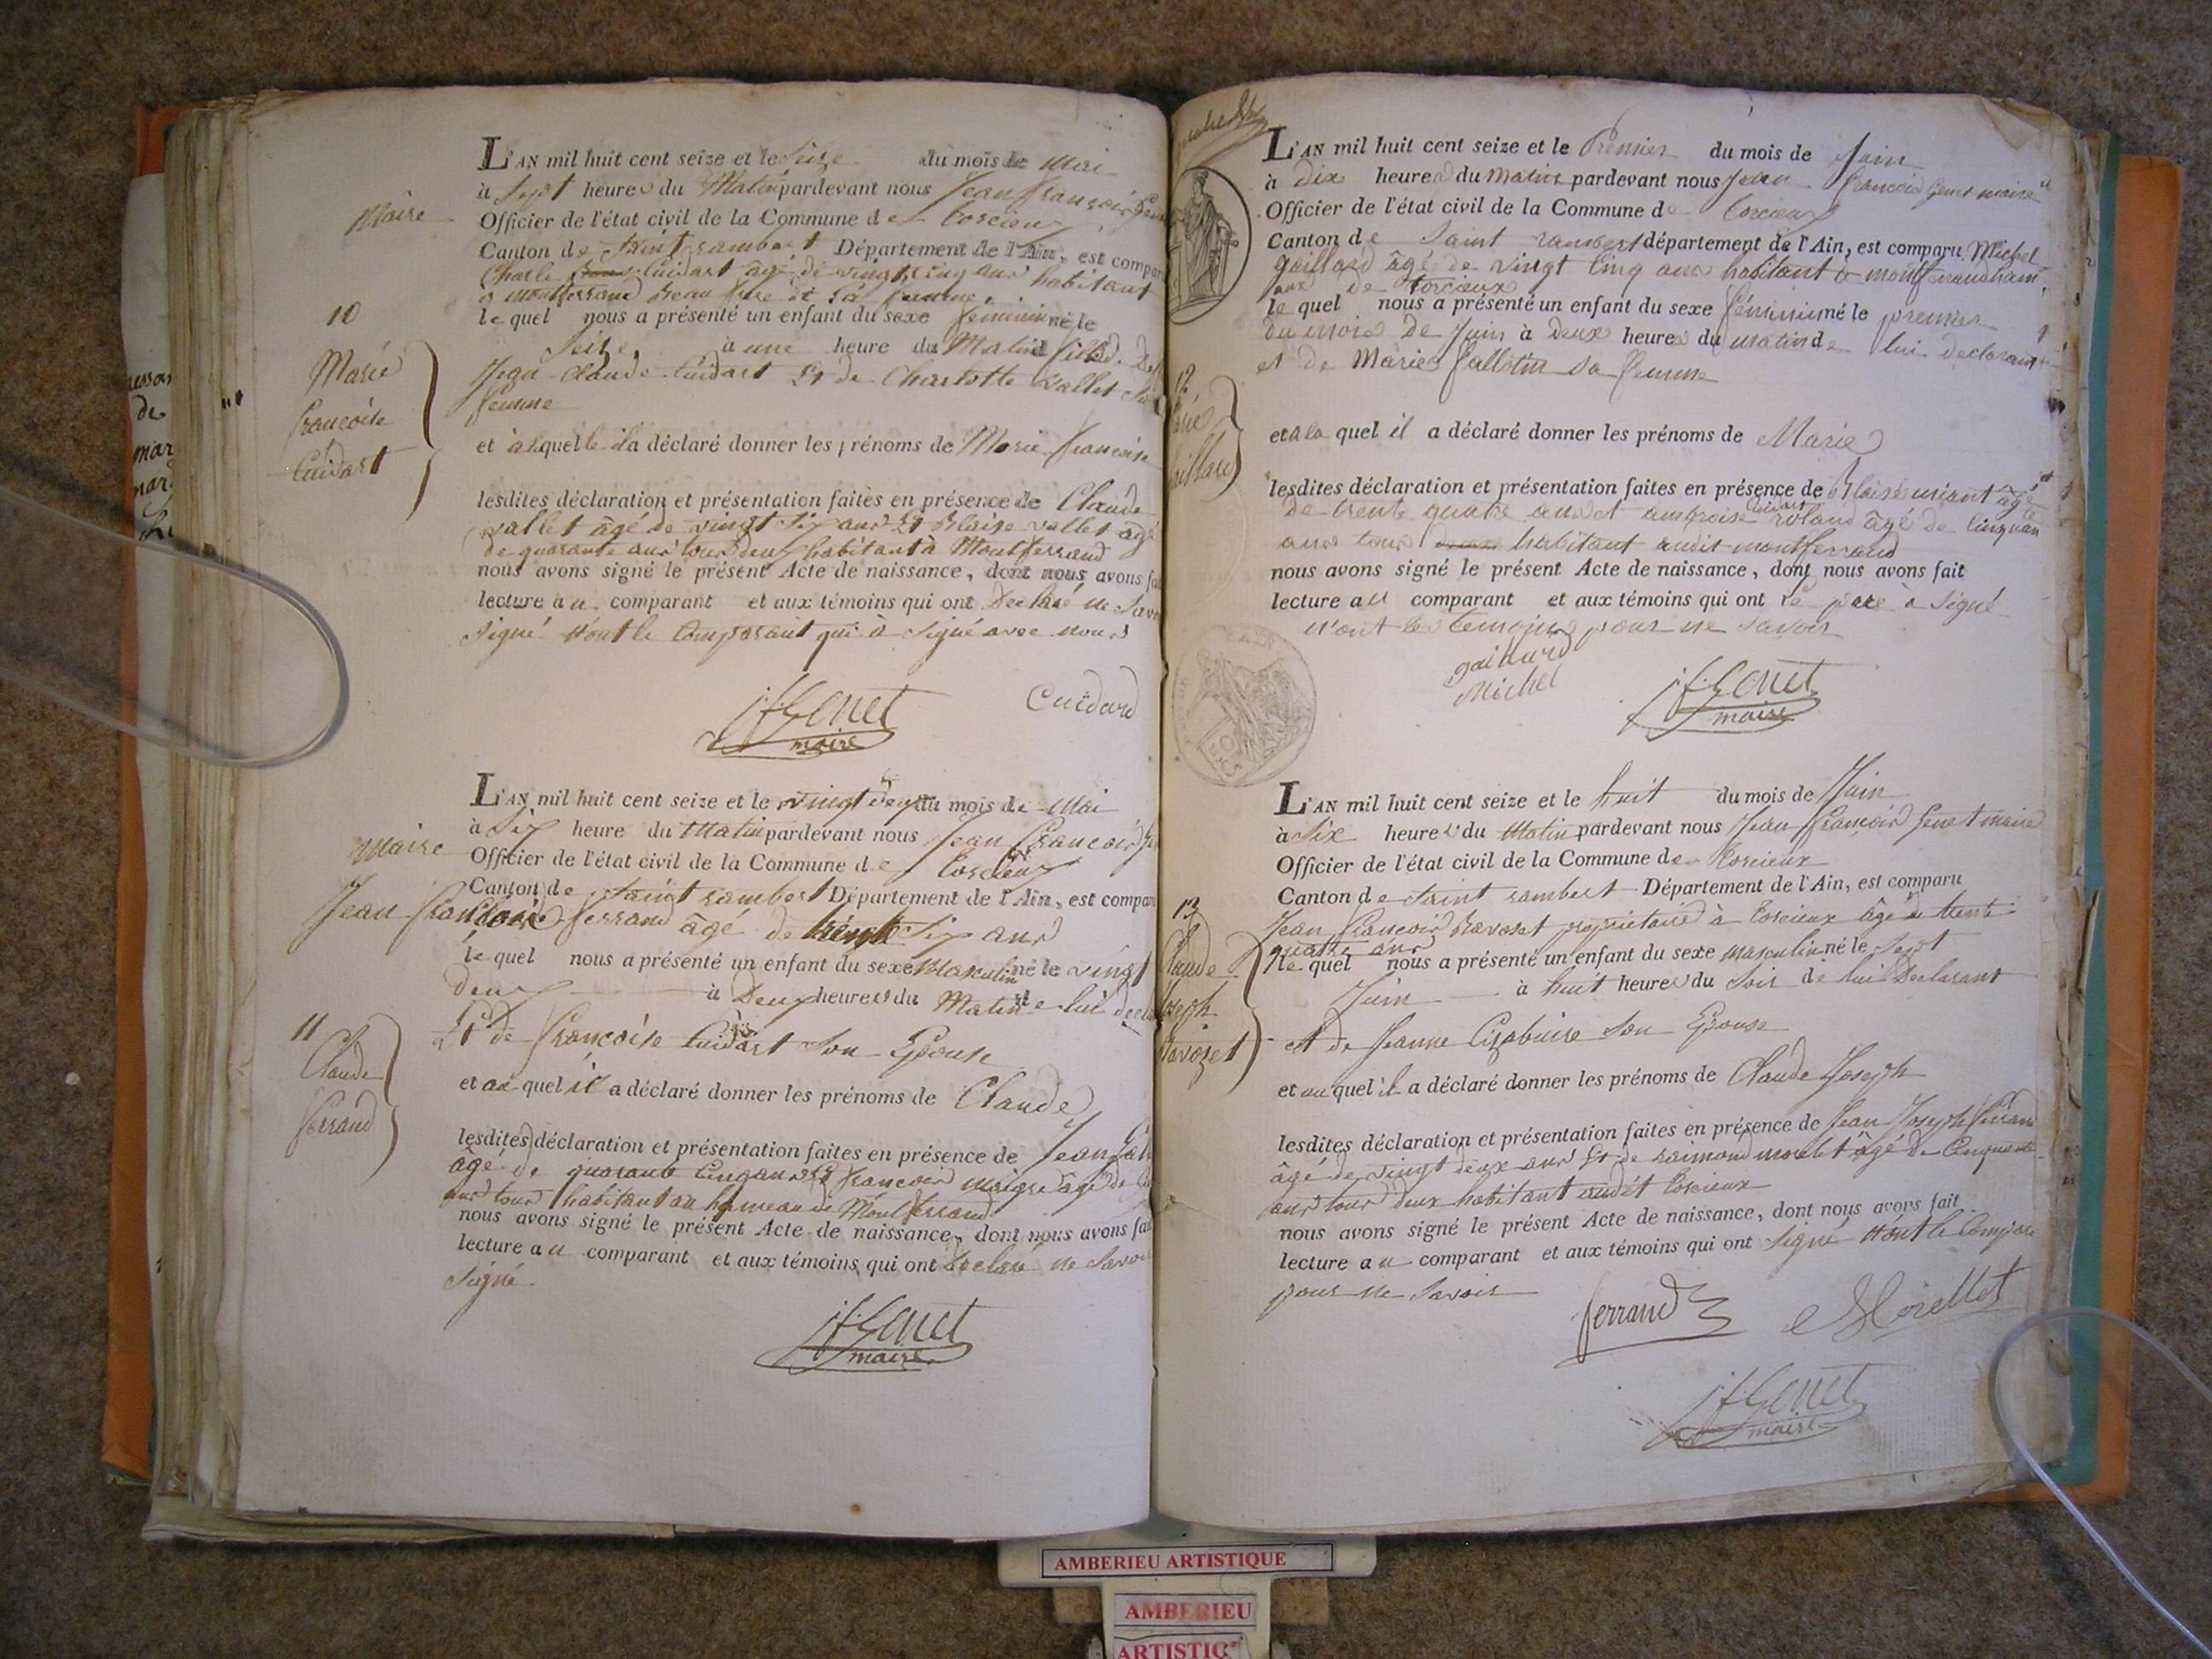 L'AN mil huit cent seize et le Seize du mois de Mai
à Sept heures du Matin pardevant nous Jean françois
Maire
Officier de l'état civil de la Commune de torcieu
Canton de Saint rambert Département de l'Ain, est compar
Charle Cuidart âgé de vingt cinq ans habitant
a montferrand beau frere de Sa femme
10
le quel nous a présenté un enfant du sexe feminin né le
Seize à une heure du Matin fille de
Marie
Jean Claude Cuidart Et de Charlotte vallet Sa
femme
françoise
Cuidart
et à laquelle il a déclaré donner les prénoms de Marie françoise
lesdites déclaration et présentation faites en présence de Claude
vallet âgé de vingt Six ans Et Blaise vallet âgé
de quarante ans tous deux habitant à Montferrand
nous avons signé le présent Acte de naissance, dont nous avons fai
lecture au comparant et aux témoins qui ont Déclaré ne Savoir
Signé N'ont le Comparant qui à Signé avec nous
Cuidard
jfGenet
maire
L'AN mil huit cent seize et le vingt deux du mois de Mai
à Six heure du Matin pardevant nous Jean françois
maire
Officier de l'état civil de la Commune de torcieux
Canton de Saint rambert Département de l'Ain, est compar
Jean françois ferrand âgé de trente Six ans
le quel nous a présenté un enfant du sexe Masculin né le vingt
deux à Deux heures du Matin de lui decla
11
Et de françoise Cuidart Son Epouse
Claude
ferrand
et au quel il a déclaré donner les prénoms de Claude
lesdites déclaration et présentation faites en présence de Jean
âgé de quarante Cinq ans Et françois maigre âgé de
ans tous habitant au hameau de Montferrand
nous avons signé le présent Acte de naissance, dont nous avons fai
lecture au comparant et aux témoins qui ont Déclaré ne Savoir
Signé.
jfGenet
maire
L'AN mil huit cent seize et le Premier du mois de Juin
à Dix heures du Matin pardevant nous Jean françois Genet maire
Officier de l'état civil de la Commune de torcieux
Canton de Saint rambert département de l'Ain, est comparu Michel
gaillard âgé de vingt Cinq ans habitant a montferrand ham
aux de torcieux
le quel nous a présenté un enfant du sexe féminin né le premier
du mois de Juin à Deux heures du matin de lui declarant
et de Marie fallotin Sa femme
12
et à la quel il a déclaré donner les prénoms de Marie
lesdites déclaration et présentation faites en présence de Blaise âgé
de trente quatre ans et ambroise Cuidart roland âgé de Cinquan
ans tous habitant audit montferrand
nous avons signé le présent Acte de naissance, dont nous avons fait
lecture au comparant et aux témoins qui ont le pere a Signé
n'ont les temoins pour ne savoir
gaillard
Michel
jfGenet
maire
L'AN mil huit cent seize et le huit du mois de Juin
à Six heures du Matin pardevant nous Jean françois Genet maire
Officier de l'état civil de la Commune de torcieux
Canton de Saint rambert Département de l'Ain, est comparu
13
Jean françois Ravoset propriétaire à torcieux âgé de trente
quatre ans
Claude
le quel nous a présenté un enfant du sexe masculin né le Sept
Juin à huit heures du Soir de lui Declarant
Joseph
et de Jeanne Son Epouse
Ravozet
et au quel il a déclaré donner les prénoms de Claude Joseph
lesdites déclaration et présentation faites en présence de Jean Joseph ferrand
âgé de vingt deux ans Et de raimond morelet âgé de Cinquante
ans tous deux habitant audit torcieux
nous avons signé le présent Acte de naissance, dont nous avons fait
lecture au comparant et aux témoins qui ont Signé N'ont le Compara
pour ne Savoir
ferrand
Morellet
jfGenet
maire
AMBERIEU ARTISTIQUE
AMBERIEU
ARTISTIQ